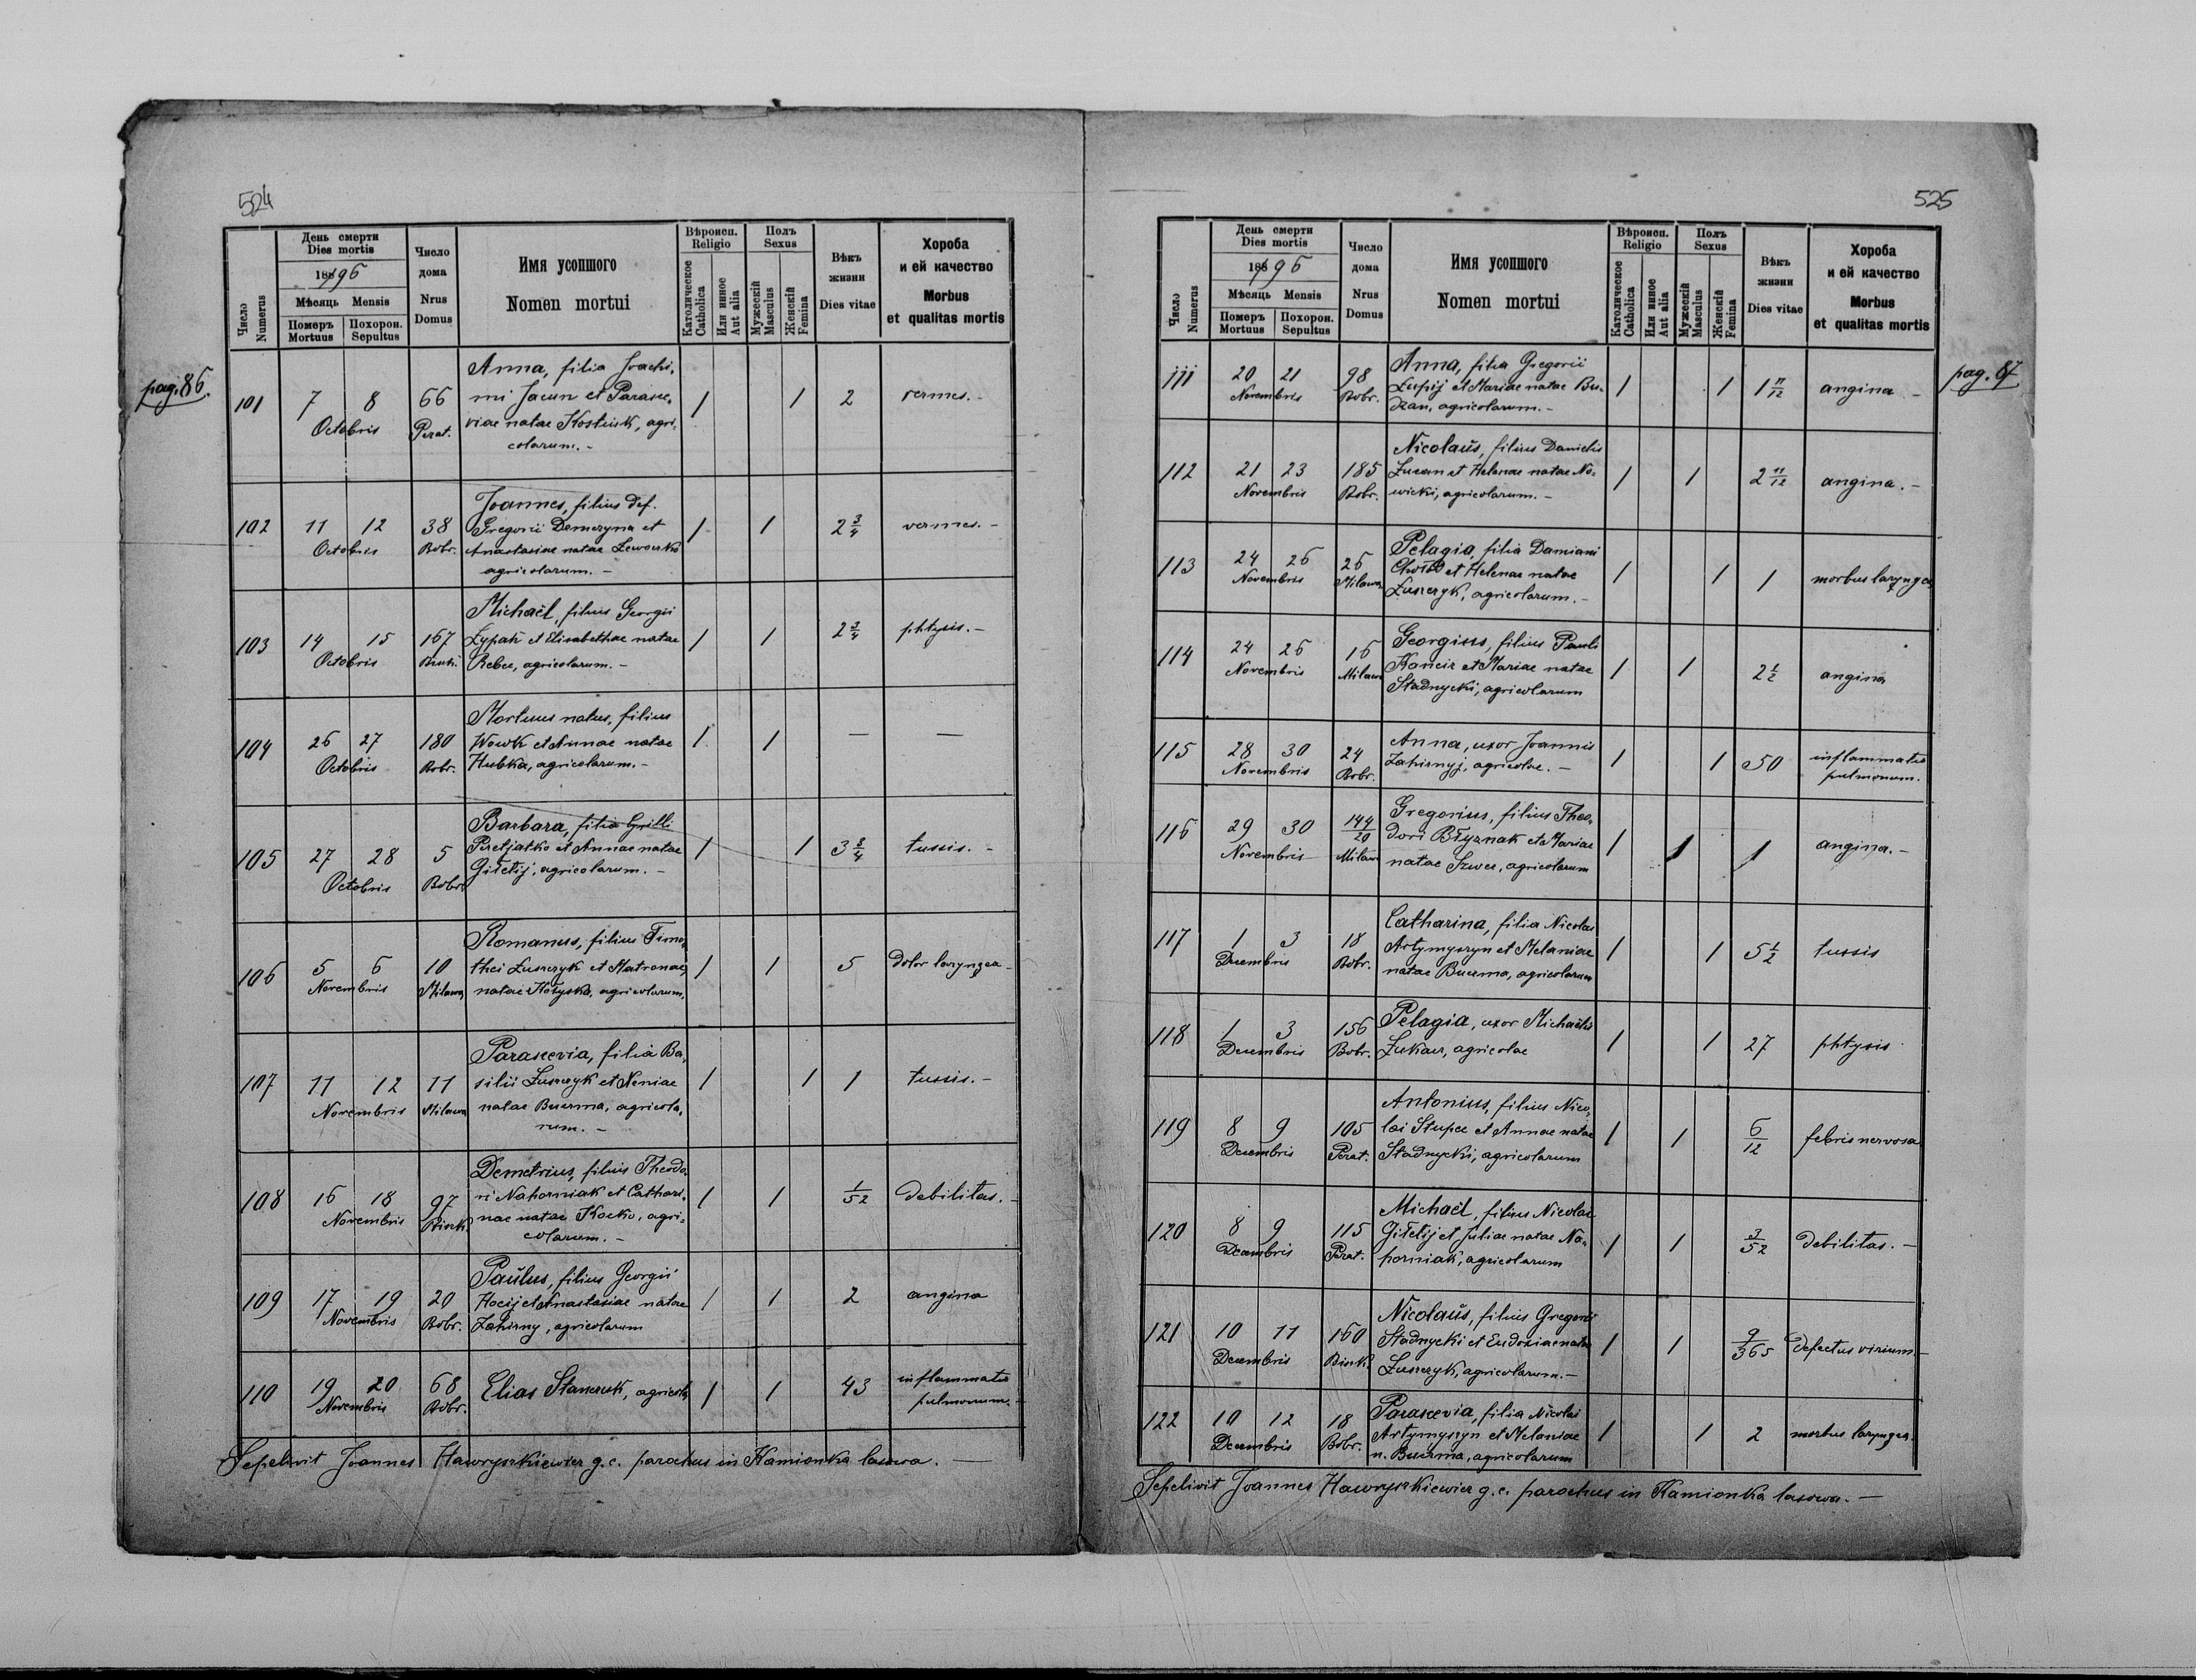 524
Число
Numerus
День смерти
Dies mortis
1896
Мѣсяць Mensis
Померъ
Mortuus
Похорон.
Sepultus
Число
дома
Nrus
Domus
Имя усопшого
Nomen mortui
Вѣроисп.
Religio
Католическое
Catholica
Или инное
Aut alia
Полъ
Sexus
Мужескій
Masculus
Женскій
Femina
Вѣкъ
жизни
Dies vitae
Хороба
и ей качество
Morbus
et qualitas mortis
pag. 86.
101 7 8 Octobris 66 Perat.
Anna, filia Joachi-
mi Jacun et Parasce-
viae natae Kostiuk, agri-
colarum. -
1 1 2 vermes. -
102 11 12 Octobris 38 Bobr.
Joannes, filius def.
Gregorii Demezyna et
Anastasiae natae Lewouko
agricolarum. -
1 1 2 3/4 vermes. -
103 14 15 Octobris 167
Michaël, filius Georgii
Łypak et Elisabethae natae
Rebee, agricolarum. -
1 1 2 3/4 phtysis. -
104 26 27 Octobris 180 Bobr.
Mortuus natus, filius
Wowk et Annae natae
Hubka, agricolarum. -
1 1 — —
105 27 28 Octobris 5 Bobr.
Barbara, filia Cyrilli
Peretjatko et Annae natae
Giletij, agricolarum. -
1 1 3 3/4 tussis. -
106 5 6 Novembris 10 Milawa
Romanus, filius Timo-
thei Łuszczyk et Matronae,
natae Hołyska, agricolarum.
1 1 5 dolor laryngea -
107 11 12 Novembris 11 Milawa
Parascevia, filia Ba-
silii Łuszczyk et Xeniae
natae Buczma, agricola-
rum. -
1 1 1 tussis. -
108 16 18 Novembris 97
Demetrius, filius Theodo-
ri Nahorniak et Cathari-
nae natae Kocko, agri-
colarum. -
1 1 1/52 debilitas. -
109 17 19 Novembris 20 Bobr.
Paulus, filius Georgii
Hocij et Anastasiae natae
Zahirny, agricolarum
1 1 2 angina
110 19 20 Novembris 68 Bobr.
Elias Stanczuk, agricola
1 1 43 inflammatio
pulmonum. -
Sepelivit Joannes Hawryszkiewicz g. c. parochus in Kamionka lasowa. —
525
Число
Numerus
День смерти
Dies mortis
1896
Мѣсяць Mensis
Померъ
Mortuus
Похорон.
Sepultus
Число
дома
Nrus
Domus
Имя усопшого
Nomen mortui
Вѣроисп.
Religio
Католическое
Catholica
Или инное
Aut alia
Полъ
Sexus
Мужескій
Masculus
Женскій
Femina
Вѣкъ
жизни
Dies vitae
Хороба
и ей качество
Morbus
et qualitas mortis
pag. 87
111 20 21 Novembris 98 Bobr.
Anna, filia Gregorii
Łupij et Mariae natae Bu-
dzan, agricolarum. -
1 1 1 11/12 angina -
112 21 23 Novembris 185 Bobr.
Nicolaus, filius Danielis
Łucan et Helenae natae No-
wicki, agricolarum. -
1 1 2 11/12 angina. -
113 24 26 Novembris 26 Milawa
Pelagia, filia Damiani
et Helenae natae
Łuszczyk, agricolarum. -
1 1 1 morbus laryngea
114 24 26 Novembris 16 Milawa
Georgius, filius Pauli
Kancir et Mariae natae
Stadnycki, agricolarum
1 1 2 1/2 angina
115 28 30 Novembris 24 Bobr.
Anna, uxor Joannis
Zahirnyj, agricolae. -
1 1 50 inflammatio
pulmonum.
116 29 30 Novembris 144/20 Milawa
Gregorius, filius Theo-
dori Błyznak et Mariae
natae Szwec, agricolarum
1 1 1 angina. -
117 1 3 Decembris 18 Bobr.
Catharina, filia Nicolai
Artymyszyn et Melaniae
natae Buczma, agricolarum
1 1 5 1/2 tussis
118 1 3 Decembris 156 Bobr.
Pelagia, uxor Michaëlis
Łukacz, agricolae
1 1 27 phtysis
119 8 9 Decembris 105 Perat.
Antonius, filius Nico-
lai Stupec et Annae natae
Stadnycki, agricolarum
1 1 6/12 febris nervosa
120 8 9 Decembris 115 Perat.
Michaël, filius Nicolai
Giletij et Juliae natae Na-
horniak, agricolarum
1 1 3/52 debilitas. -
121 10 11 Decembris 160
Nicolaus, filius Gregorii
Stadnycki et Eudoxiae natae
Łuszczyk, agricolarum. -
1 1 9/365 defectus virium. -
122 10 12 Decembris 18 Bobr.
Parascevia, filia Nicolai
Artymyszyn et Melaniae
n. Buczma, agricolarum
1 1 2 morbus laryngea.
Sepelivit Joannes Hawryszkiewicz g. c. parochus in Kamionka lasowa. —